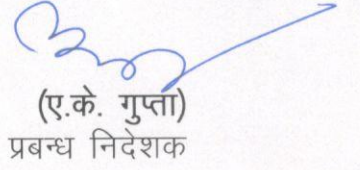 (ए.के. गुप्ता)
प्रबन्ध निदेशक